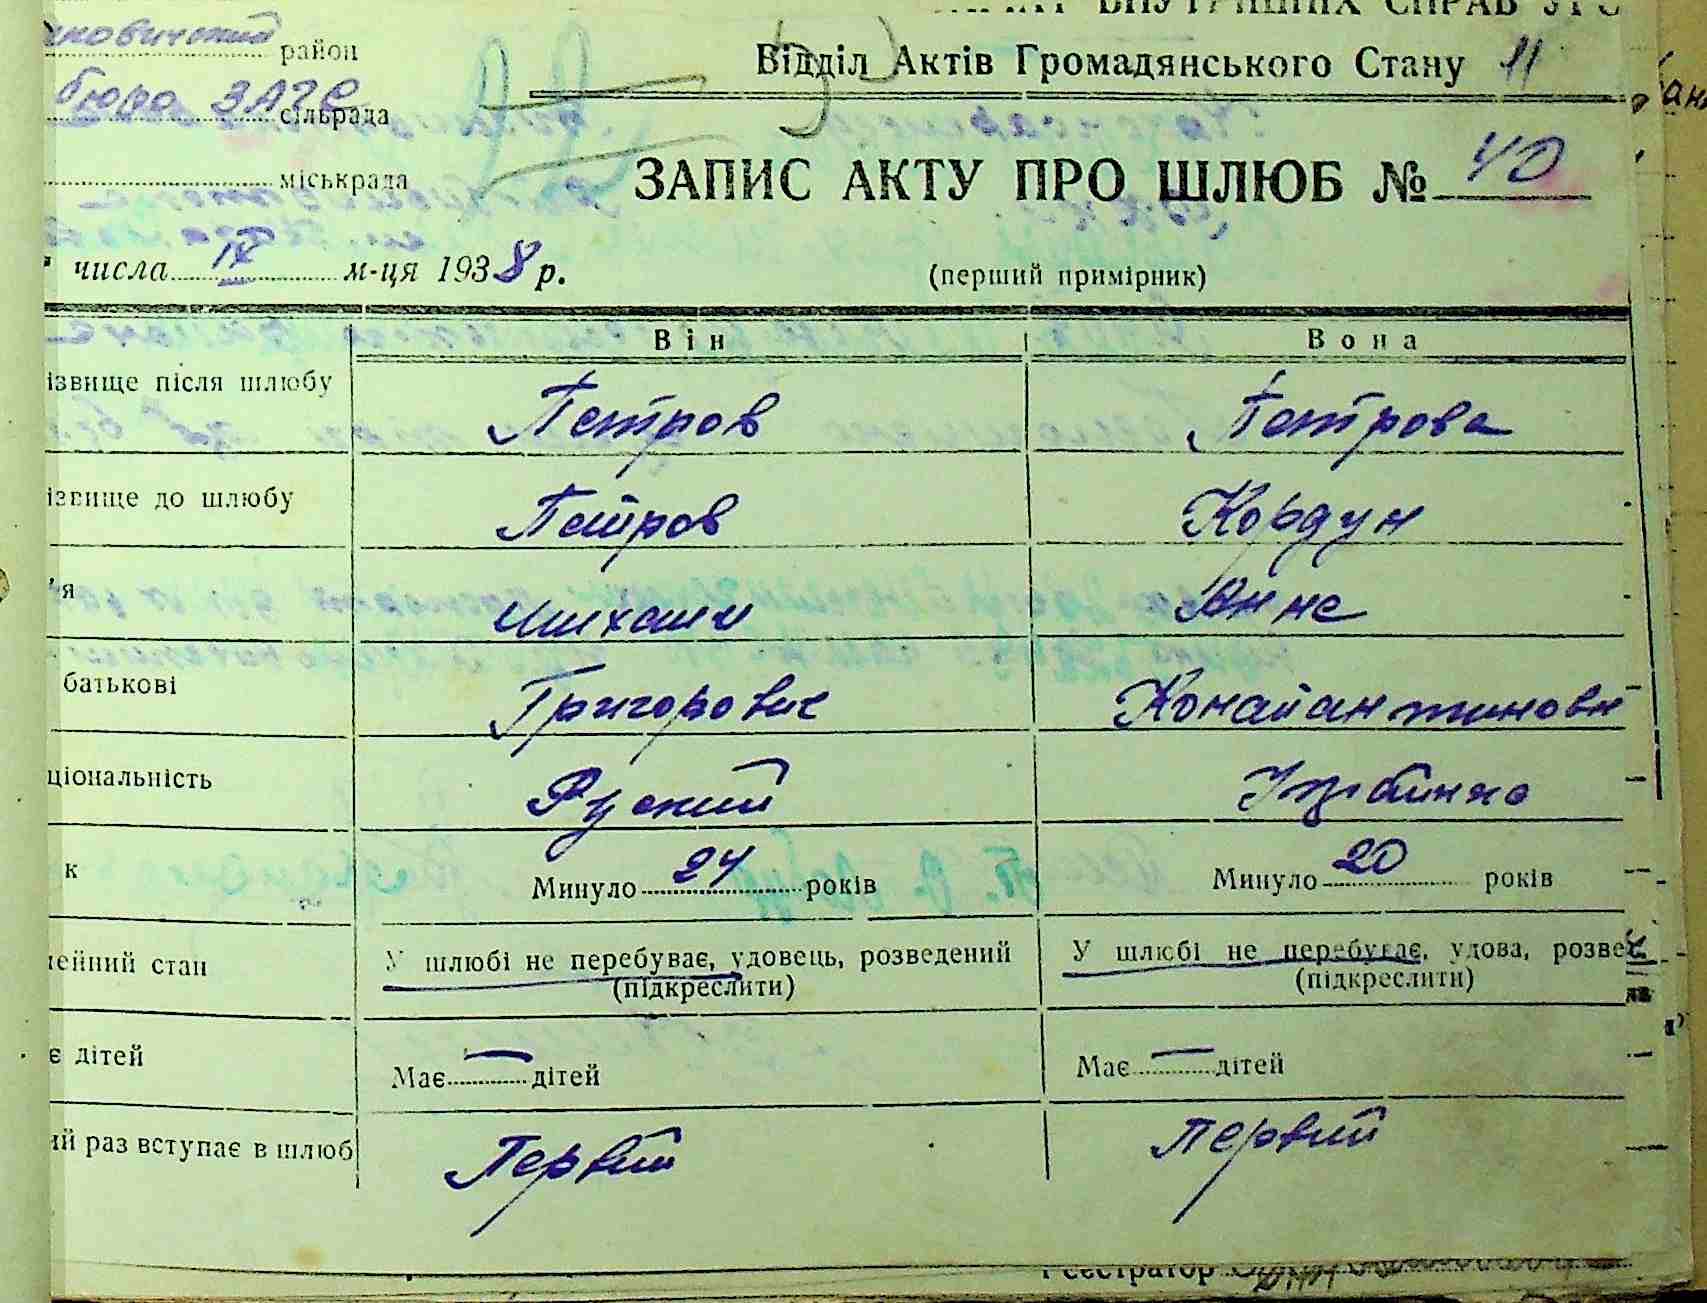 район
Відділ Актів Громадянського Стану 11
бюро ЗАГС сільрада
міськрада
ЗАПИС АКТУ ПРО ШЛЮБ № 40
числа IX м-ця 1938 р.
(перший примірник)
Він Вона
ізвище після шлюбу Петров Петрова
ізвище до шлюбу Петров Кордун
'я Михаил Анна
батькові Григорович Констайантиновн
ціональність Руский Украинка
к Минуло 24 років Минуло 20 років
ейний стан У шлюбі не перебуває, удовець, розведений У шлюбі не перебуває, удова, розве
(підкреслити) (підкреслити)
є дітей Має — дітей Має — дітей
ий раз вступає в шлюб Первий Первий
Реєстратор